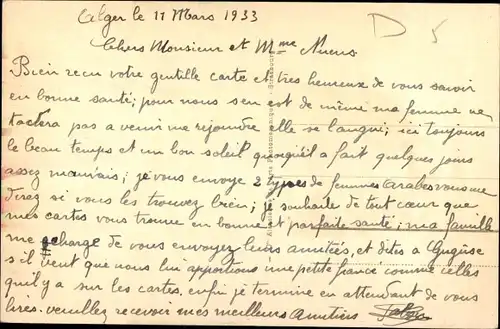 Alger le 11 Mars 1933
D 5
Chers Monsieur et Mme Nuens
Bien reçu votre gentille carte et très heureux de vous savoir
en bonne santé; pour nous s'en est de même ma femme ne
tactera pas a venir me rejoindre elle se langui; ici toujours
le beau temps et un bon soleil quoiqu'il a fait quelques jours
assez mauvais; je vous envoye 2 types de femmes arabes vous me
direz si vous les trouvez bien; je souhaite de tout cœur que
mes cartes vous trouve en bonne et parfaite santé; ma famille
me charge de vous envoyez leurs amitiés, et dites a Gugusse
s'il veut que nous lui apportions une petite franc comme celles
qu'il y a sur les cartes, enfin je termine en attendant de vous
lires. veuillez recevoir mes meilleurs amitiés